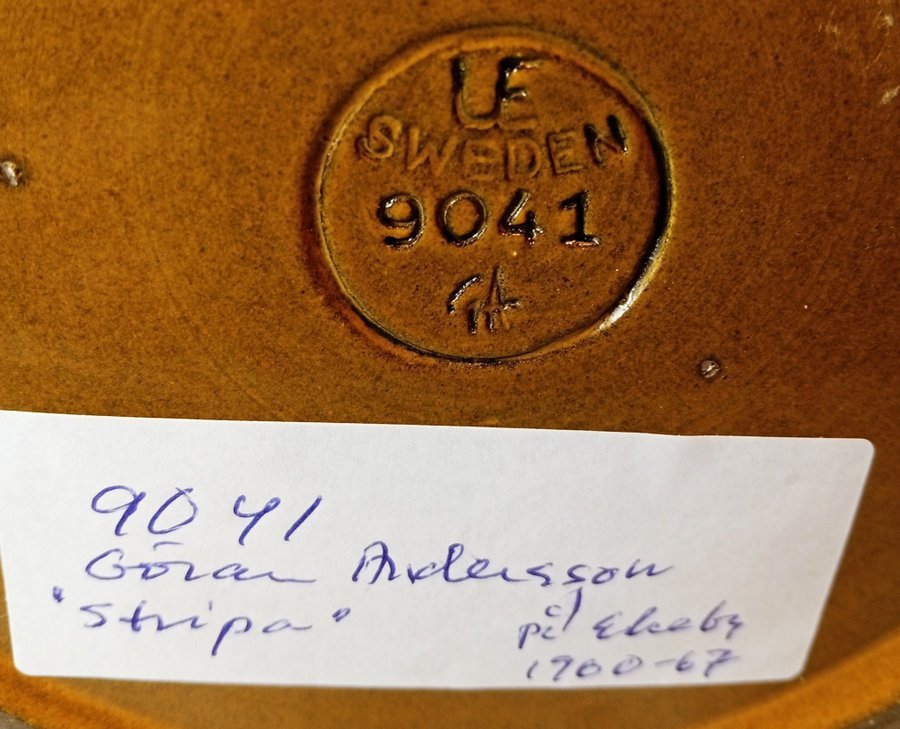 UE
SWEDEN
9041
GA
9041
Göran Andersson
"Stripa"
på Ekeby
1960-67